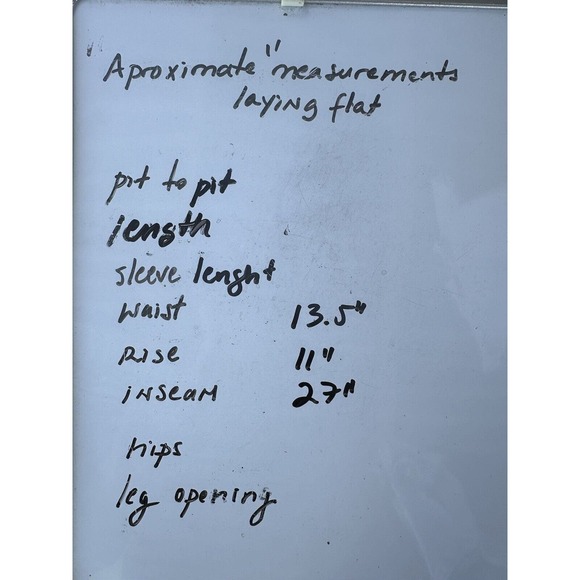 "Aproximate" measurements
laying flat
pit to pit
length
sleeve lenght
waist 13.5"
Rise 11"
inseam 27"
hips
leg opening